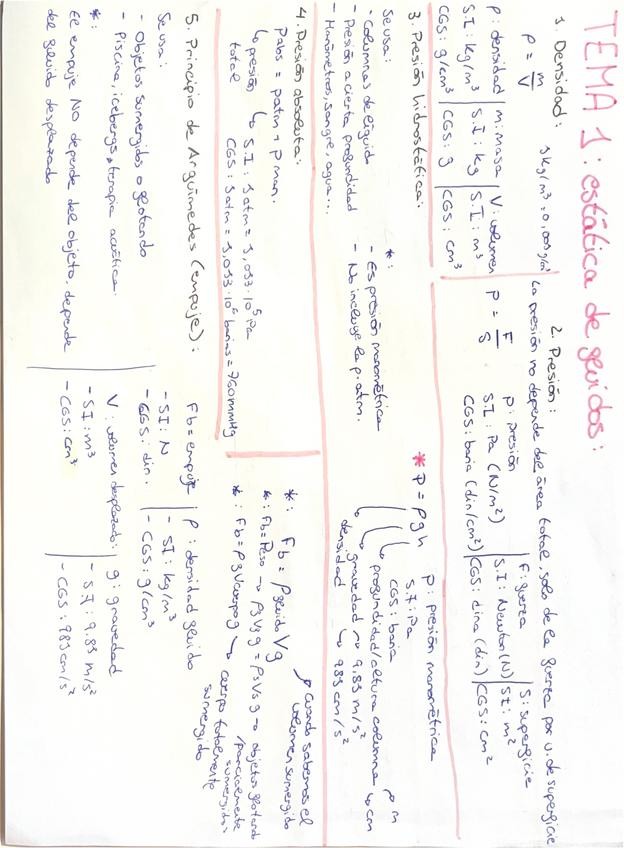 TEMA 1: estática de fluidos:
1. Densidad:
ρ = m/V
1 kg/m³ = 0,001 g/cm³
ρ: densidad | m: masa | V: volumen
S.I: kg/m³ | S.I: kg | S.I: m³
CGS: g/cm³ | CGS: g | CGS: cm³
2. Presión:
La presión no depende del área total, solo de la fuerza por u. de superficie
P = F/S
p: presión | F: fuerza | S: superficie
S.I: Pa (N/m²) | S.I: Newton (N) | S.I: m²
CGS: baria (din/cm²) | CGS: dina (din) | CGS: cm²
3. Presión hidrostática:
Se usa:
- Columnas de líquido
- Presión a cierta profundidad
- Manómetros, sangre, agua...
*:
- Es presión manométrica
- No incluye la p. atm.
* P = ρgh
p: presión manométrica
S.I: Pa
CGS: baria
profundidad/altura columna → m → cm
gravedad → 9.81 m/s² → 981 cm/s²
densidad
4. Presión absoluta:
Pabs = patm + p man.
↳ presión total
↳ S.I: 1 atm = 1,013·10⁵ Pa
CGS: 1 atm = 1,013·10⁶ barias = 760 mmHg
5. Principio de Arquímedes (empuje):
Se usa:
- Objetos sumergidos o flotando
- Piscina, icebergs, terapia acuática.
*:
El empuje NO depende del objeto, depende
del fluido desplazado
*: Fb = ρfluido Vg → cuando sabemos el volumen sumergido
*: Fb = Peso → ρf Vs g = ρs Vs g → objetos flotando /parcialmente sumergidos
*: Fb = ρf Vcuerpo g → cuerpo totalmente sumergido
Fb = empuje | ρ: densidad fluido
- S.I: N | - S.I: kg/m³
- CGS: din. | - CGS: g/cm³
V: volumen desplazado: | g: gravedad
- S.I: m³ | - S.I: 9.81 m/s²
- CGS: cm³ | - CGS: 981 cm/s²